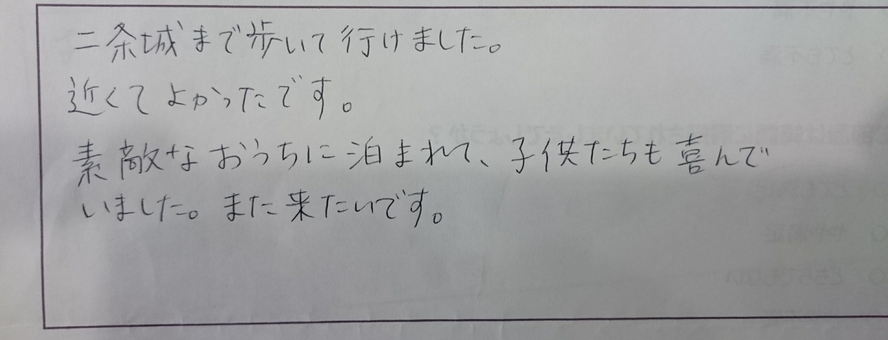 二条城まで歩いて行けました。
近くてよかったです。
素敵なおうちに泊まれて、子供たちも喜んで
いました。また来たいです。